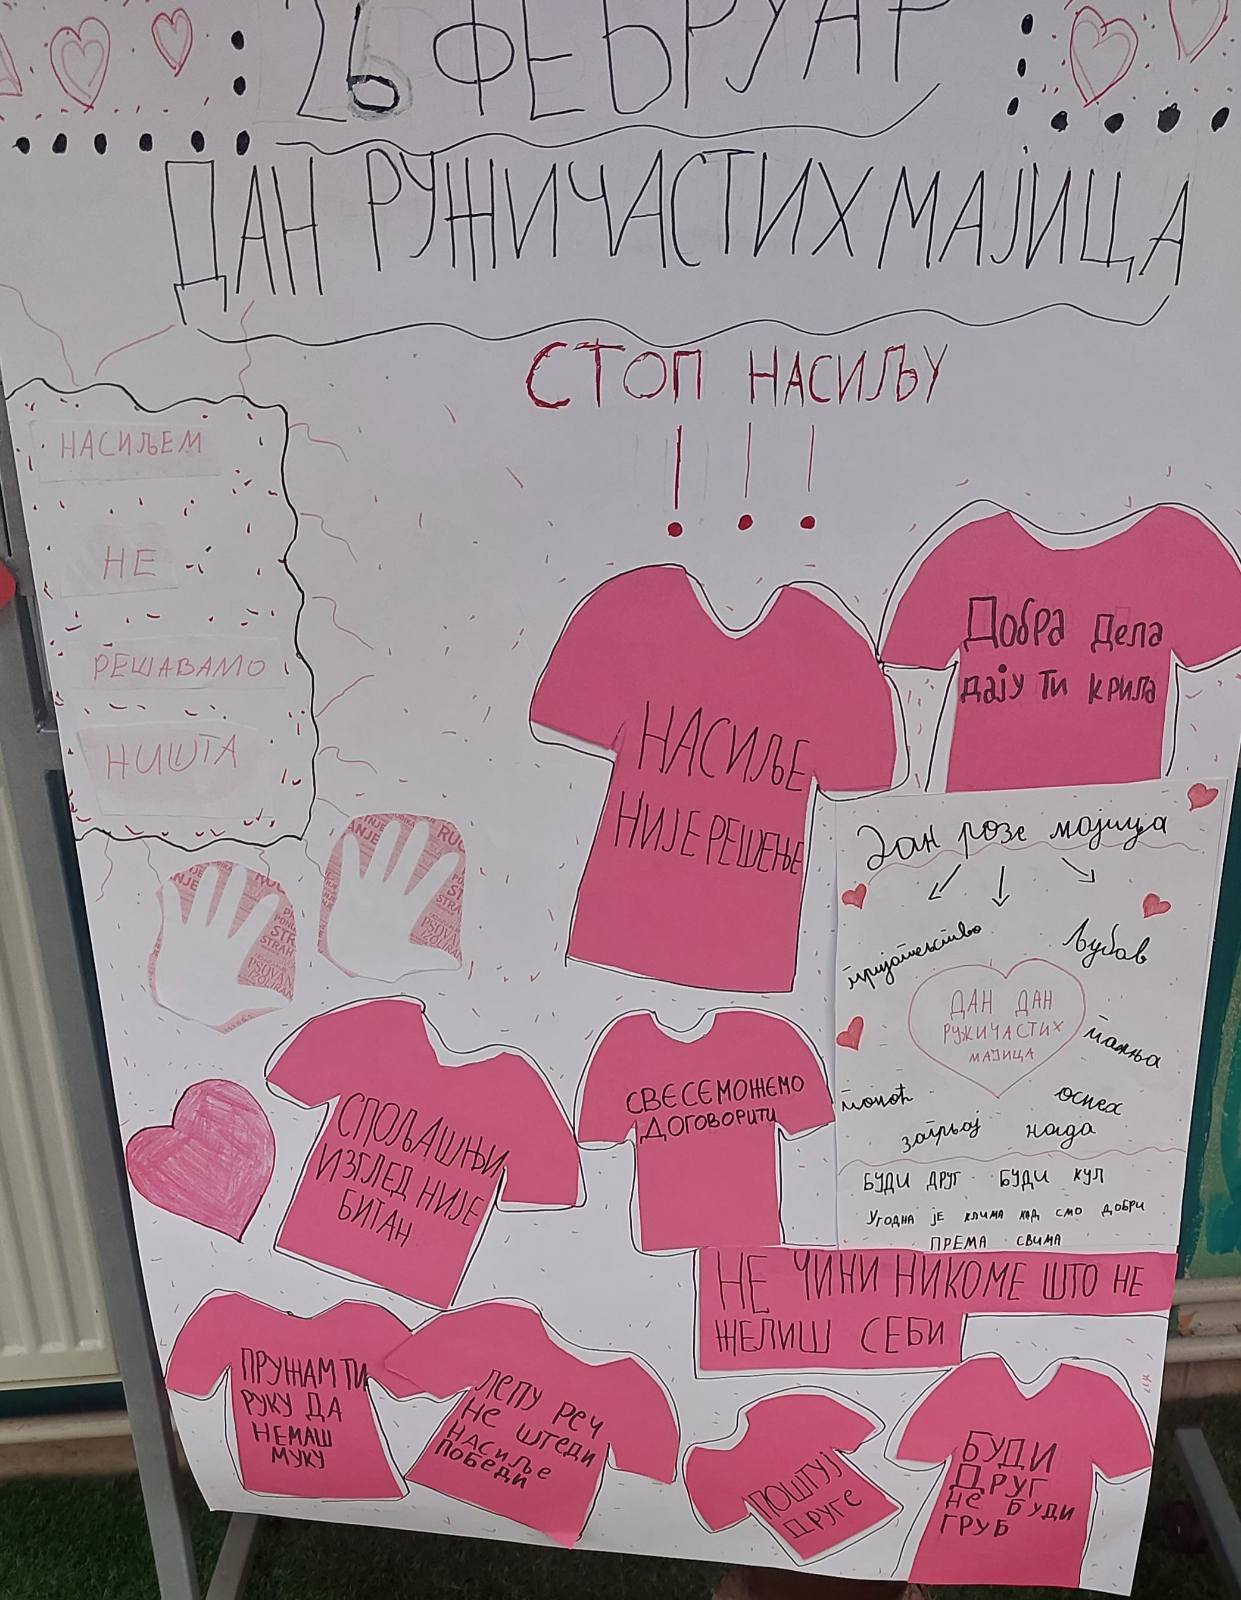 26 ФЕБРУАР
ДАН РУЖИЧАСТИХ МАЈИЦА
СТОП НАСИЉУ
!!!
НАСИЉЕМ
НЕ
РЕШАВАМО
НИШТА
Добра дела
дају ти крила
НАСИЉЕ
НИЈЕ РЕШЕЊЕ
Дан розе мајица
пријатељство
Љубав
ДАН ДАН
РУЖИЧАСТИХ
МАЈИЦА
пажња
помоћ
успех
загрљај
нада
БУДИ ДРУГ БУДИ КУЛ
УГОДНА ЈЕ КЛИМА КАД СМО ДОБРИ
ПРЕМА СВИМА
СПОЉАШЊИ
ИЗГЛЕД НИЈЕ
БИТАН
СВЕ СЕ МОЖЕМО
ДОГОВОРИТИ
НЕ ЧИНИ НИКОМЕ ШТО НЕ
ЖЕЛИШ СЕБИ
ПРУЖАМ ТИ
РУКУ ДА
НЕМАШ
МУКУ
ЛЕПУ РЕЧ
НЕ ШТЕДИ
НАСИЉЕ
ПОБЕДИ
ПОШТУЈ
ДРУГЕ
БУДИ
ДРУГ
НЕ БУДИ
ГРУБ